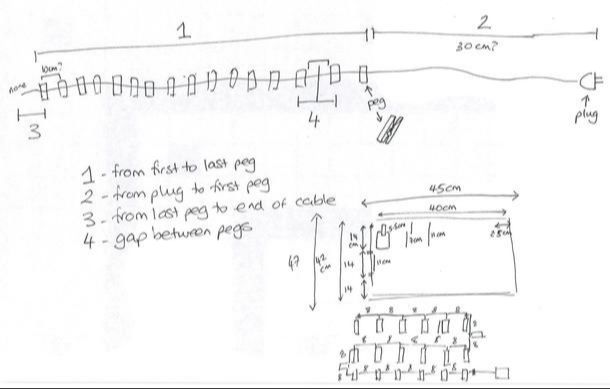 1
2
30cm?
10cm?
none
peg
plug
3
4
1 - from first to last peg
2 - from plug to first peg
3 - from last peg to end of cable
4 - gap between pegs
45cm
40cm
47
42 cm
14 cm
14
14
5.5cm
11cm
11cm
2.5cm
8 8 8 8 8
8
8 8 8 8 8
8
8
8